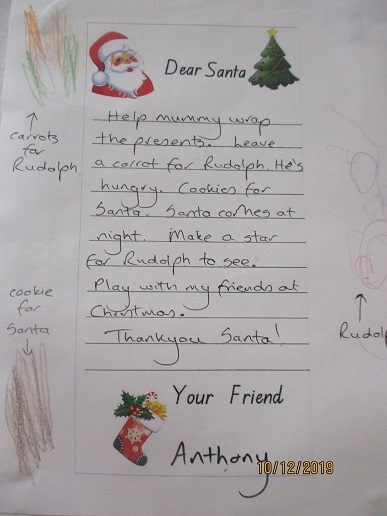 Dear Santa
Help mummy wrap
the presents. Leave
a carrot for Rudolph. He's
hungry. Cookies for
Santa. Santa comes at
night. Make a star
for Rudolph to see.
Play with my friends at
Christmas.
Thankyou Santa!
Your Friend
Anthony
carrots
for
Rudolph
cookie
for
Santa
Rudolp
10/12/2019